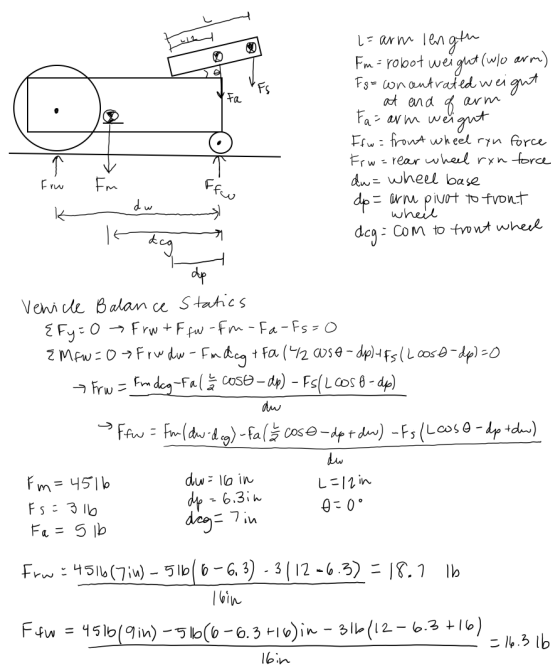 L
L/2
θ
Fa
Fs
Frw
Fm
Ffw
dw
dcg
dp
L = arm length
Fm = robot weight (w/o arm)
Fs = concentrated weight
at end of arm
Fa = arm weight
Ffw = front wheel rxn force
Frw = rear wheel rxn force
dw = wheel base
dp = arm pivot to front
wheel
dcg = COM to front wheel
Vehicle Balance Statics
ΣFy = 0 → Frw + Ffw - Fm - Fa - Fs = 0
ΣMfw = 0 → Frw dw - Fm dcg + Fa (L/2 cosθ - dp) + Fs (L cosθ - dp) = 0
→ Frw = Fm dcg - Fa (L/2 cosθ - dp) - Fs (L cosθ - dp)
dw
→ Ffw = Fm (dw - dcg) - Fa (L/2 cosθ - dp + dw) - Fs (L cosθ - dp + dw)
dw
Fm = 45 lb dw = 16 in L = 12 in
Fs = 3 lb dp = 6.3 in θ = 0°
Fa = 5 lb dcg = 7 in
Frw = 45 lb (7in) - 5 lb (6 - 6.3) - 3 (12 - 6.3) = 18.7 lb
16in
Ffw = 45 lb (9in) - 5 lb (6 - 6.3 + 16) in - 3 lb (12 - 6.3 + 16) = 16.3 lb
16in